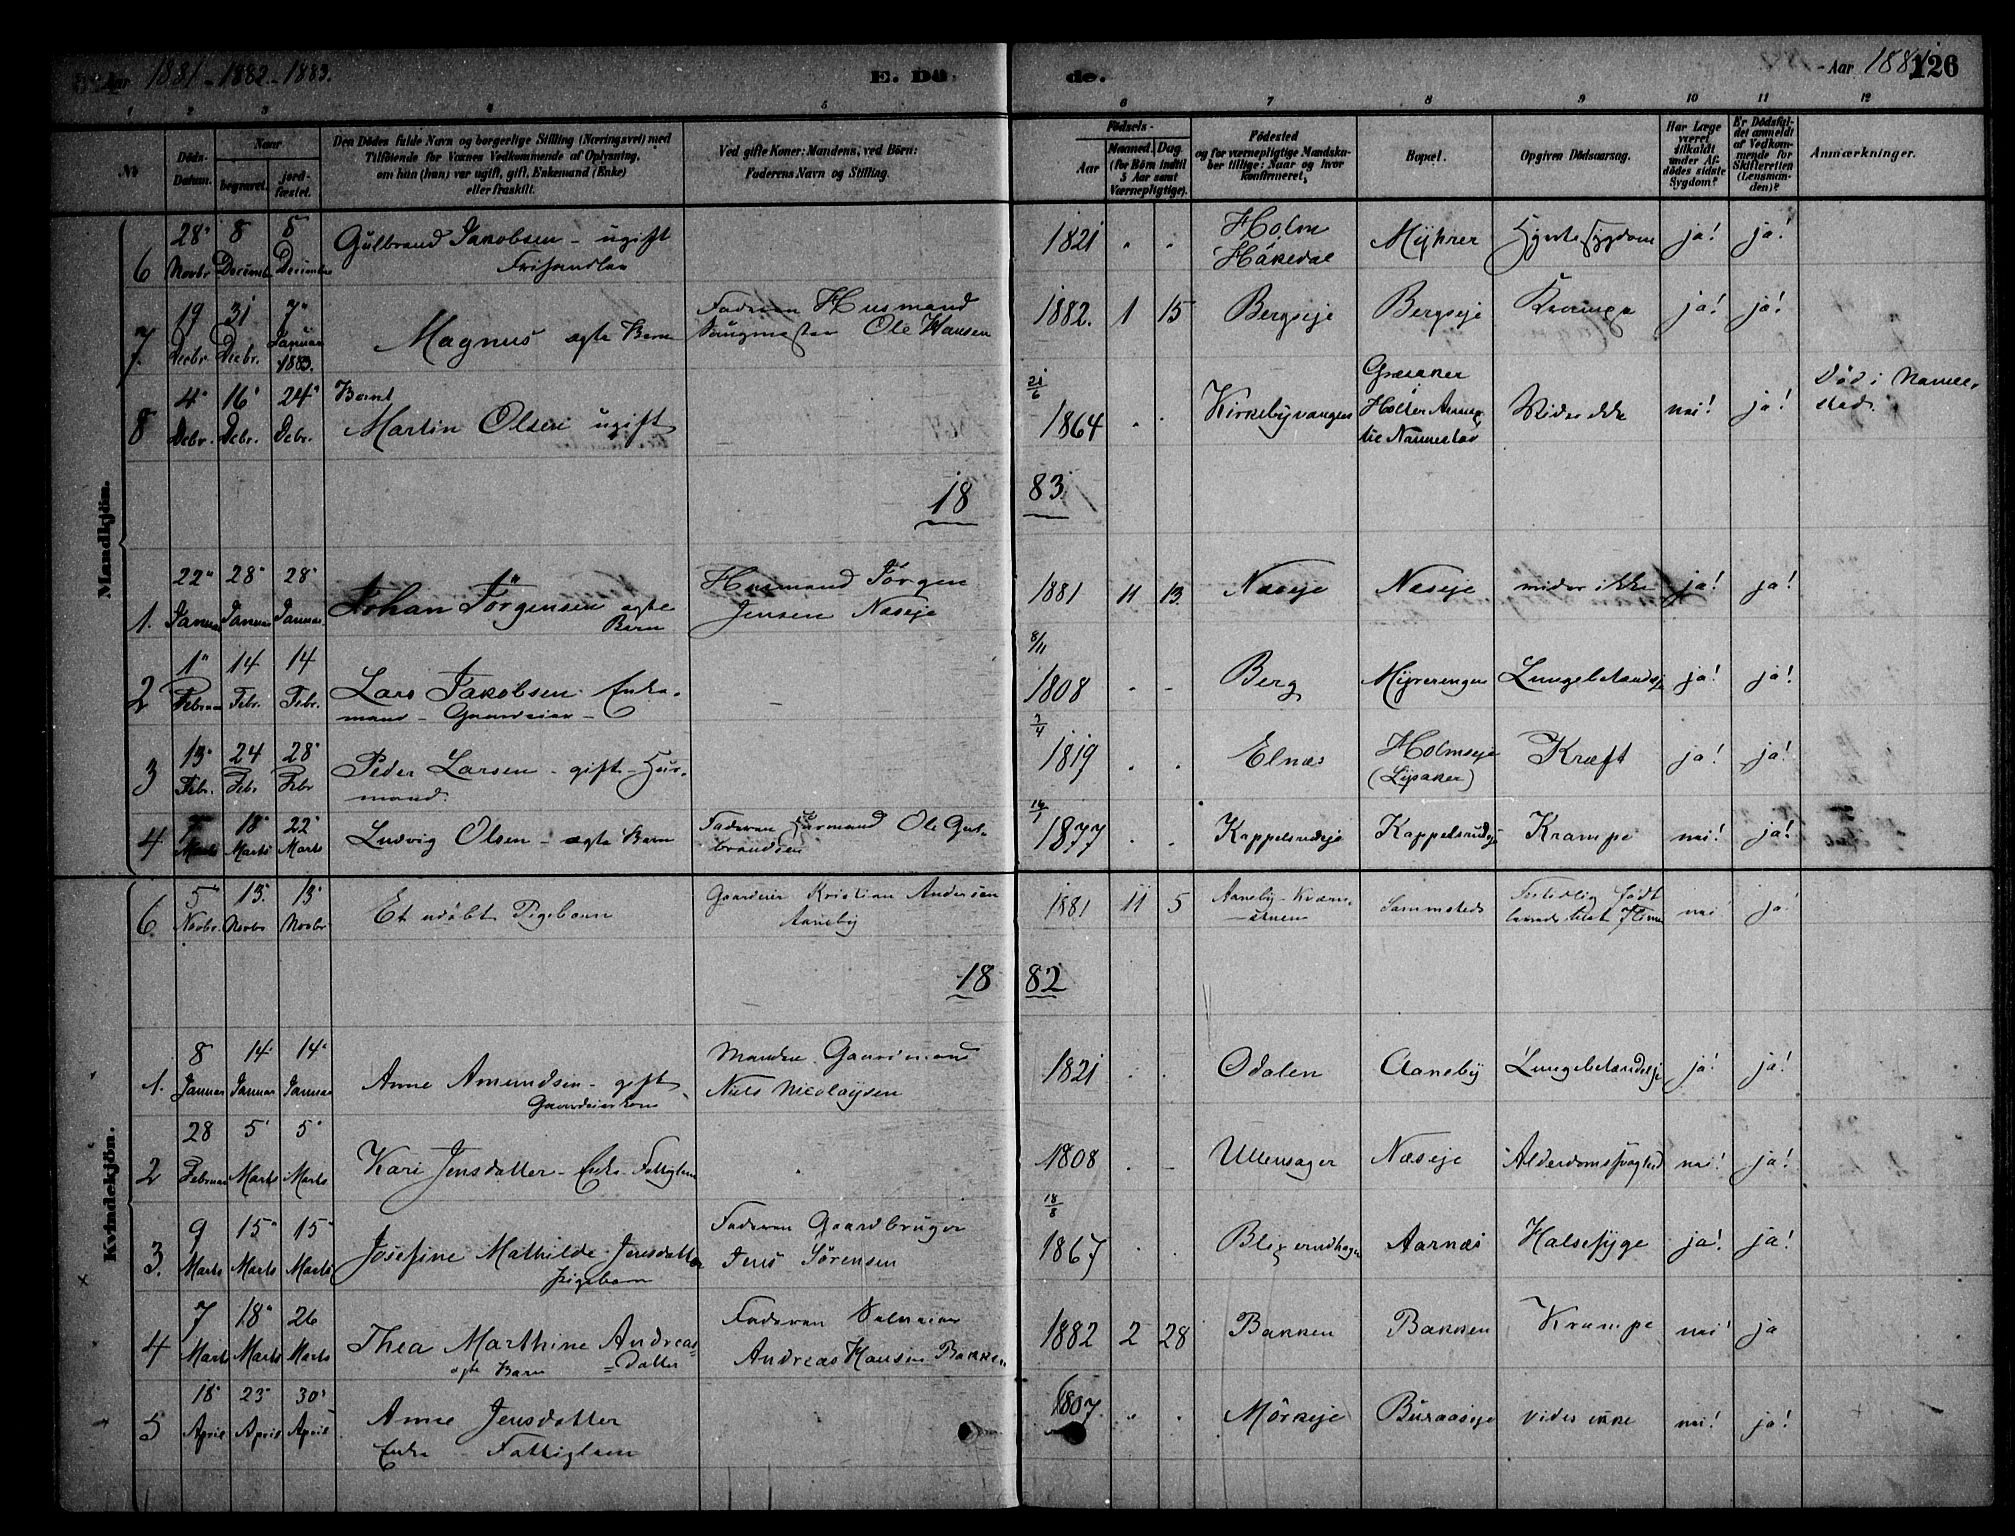 Aar 1881 - 1882 - 1883.
E. Dö
de.
- Aar 1881
126
1 2 3 4 5 6 7 8 9 10 11 12
No
Döds-Datum.
Naar
begravet.
jord-fæstet.
Den Dödes fulde Navn og borgerlige Stilling (Næringsvei) med
Tilföiende for Voxnes Vedkommende af Oplysning,
om hun (han) var ugift, gift, Enkemand (Enke)
eller fraskilt.
Ved gifte Koner: Mandens, ved Börn:
Faderens Navn og Stilling.
Födsels-
Aar
Maaned. Dag.
(for Börn indtil
3 Aar samt
Værnepligtige).
Födested
og for værnepligtige Mandska-
ber tillige: Naar og hvor
konfirmeret,
Bopæl.
Opgiven Dödsaarsag.
Har Læge
været
tilkaldt
under Af-
dödes sidste
Sygdom?
Er Dödsfal-
det anmeldt
af Vedkom-
mende for
Skifteretten
(Lensman-
den)?
Anmærkninger.
Mandkjön.
6 28 Novbr 8 Decemb. 5 Gulbrand Jakobsen - ugift
1821 " " Holm Hakedal Myhrer ja! ja!
7. 19 Decbr. 31 Decbr. 7 Januar 1883. Magnus ægte Barn
Faderen Husmand Ole Hansen
1882. 1 15 Bergseje Bergseje ja! ja!
8 4 Debr. 16 Debr. 24 Debr. Martin Olsen ugift
21/6 1864 . . Kirkebyvangen Holter Annex til Nannestad nei! ja! Död i Nannestad.
18 83
1. 22 Januar 28 Januar 28 Januar Johan Jörgensen ægte Barn
Husmand Jörgen Jensen Næseje
1881 11 13. Næseje Næseje vides ikke ja! ja!
2 1 Februar 14 Febr. 14 Febr. Lars Jakobsen Enke-
mand - Gaardeier -
8/11 1808 - - Berg Myrerengen Lungebetændelse ja! ja!
3 13 Febr. 24 Febr 28 Febr Peder Larsen - gift - Hus-
mand.
1819 . . Elnæs Holmseje (Lysaker) Kræft ja! ja!
4 Marts 18 Marts 22 Marts Ludvig Olsen - ægte Barn
Faderen Husmand Ole Gul-
brandsen
1877 . . Kappelsrudeje Kappelsrudeje Krampe nei! ja!
Kvindekjön.
6. 5 Novbr. 13. Novbr 13 Novbr Et udöbt Pigebarn
Gaardeier Kristian Andersen
Aaneby
1881 11 5 Aaneby Sammesteds nei ja!
18 82
1. 8 Januar 14 Januar 14 Januar Anne Amundsen - gift
Gaardeierkone
Manden Gaardmand
Niels Nicolaysen
1821 . . Odalen Aaneby Lungebetændelse ja! ja!
2 28 Februar 5 Marts 5 Marts Kari Jensdatter - Enke - Fattiglem
1808 . - Ullensager Næseje Alderdomssvaghed nei! ja!
3. 9 Marts 15 Marts 15 Marts Josefine Mathilde Jensdatter
Pigebarn
Faderen Gaardbruger
Jens Sörensen
18/8 1867 . . Blixerudhagen Aarnæs Halsesyge ja! ja!
4 7 Marts 18 Marts 26 Marts Thea Marthine Andreas-
ægte Barn =datter
Faderen Selveier
Andreas Hansen Bakken
1882 2 28 Bakken Bakken Krampe nei! ja
5 18 April 23 April 30 April Anne Jensdatter
Enke - Fattiglem
1807. . . Mörkeje Buraaseje vides ikke nei! ja!